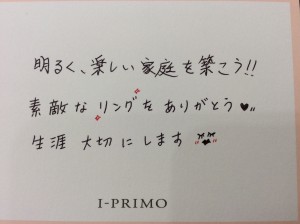 明るく、楽しい家庭を築こう!!
素敵なリングをありがとう♥〃
生涯大切にします
I-PRIMO